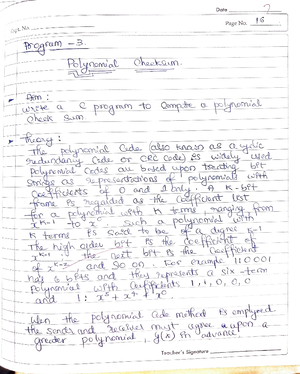 Date 7
Expt. No.
Page No. 16
Program - 3
Polynomial Checksum.
Aim:
Write a C program to Compute a polynomial
Check sum.
Theory:
The polynomial Code (also known as a cyclic
redundancy Code or CRC code) is widely used
Polynomial codes are based upon treating bit
strings as representations of polynomials with
Coefficients of 0 and 1 only. A K-bit
frame is regarded as the coefficient list
for a polynomial with K terms ranging from
x^k-1 to x^0. Such a polynomial with
K terms is said to be of a degree K-1
The high order bit is the coefficient of
x^k-1 the next bit is the coefficient
of x^k-2 and so on. For example 110001
has 6 bits and they represents a six-term
Polynomial with Coefficients 1, 1, 0, 0, 0
and 1: x^5 + x^4 + x^0
When the polynomial code method is employed
the sender and receiver must agree upon a
greater polynomial, g(x) in advance
Teacher's Signature